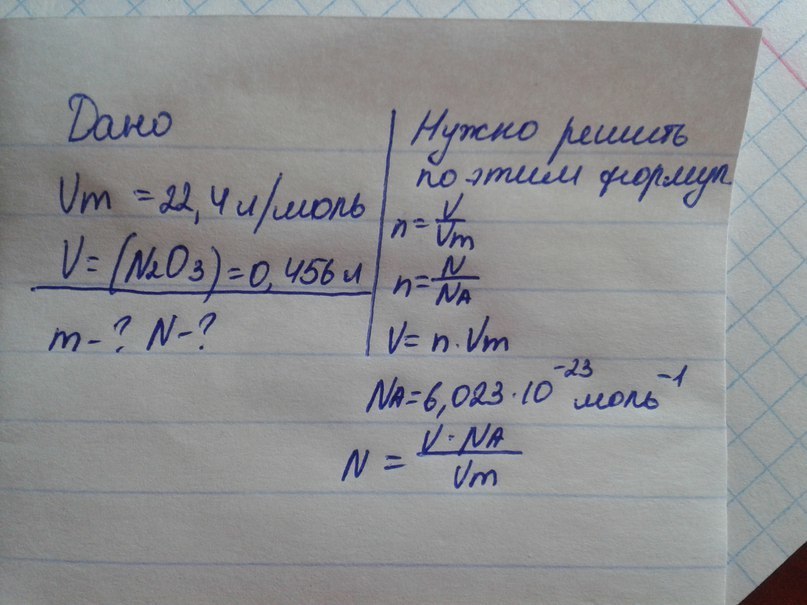 Дано
Vm = 22,4 л/моль
V = (N2O3) = 0,456 л
m - ? N - ?
Нужно решить
по этим формул
n = V/Vm
n = N/NA
V = n · Vm
NA = 6,023 · 10^-23 моль^-1
N = V · NA/Vm